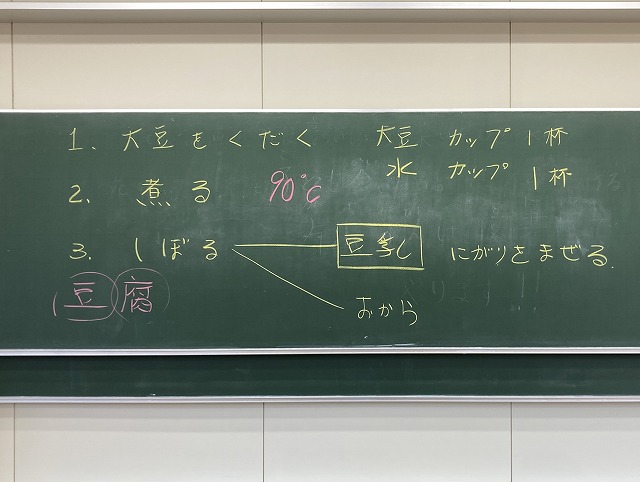 1. 大豆をくだく 大豆 カップ 1杯
水 カップ 1杯
2. 煮る 90℃
3. しぼる 豆乳 にがりをまぜる.
豆腐
おから